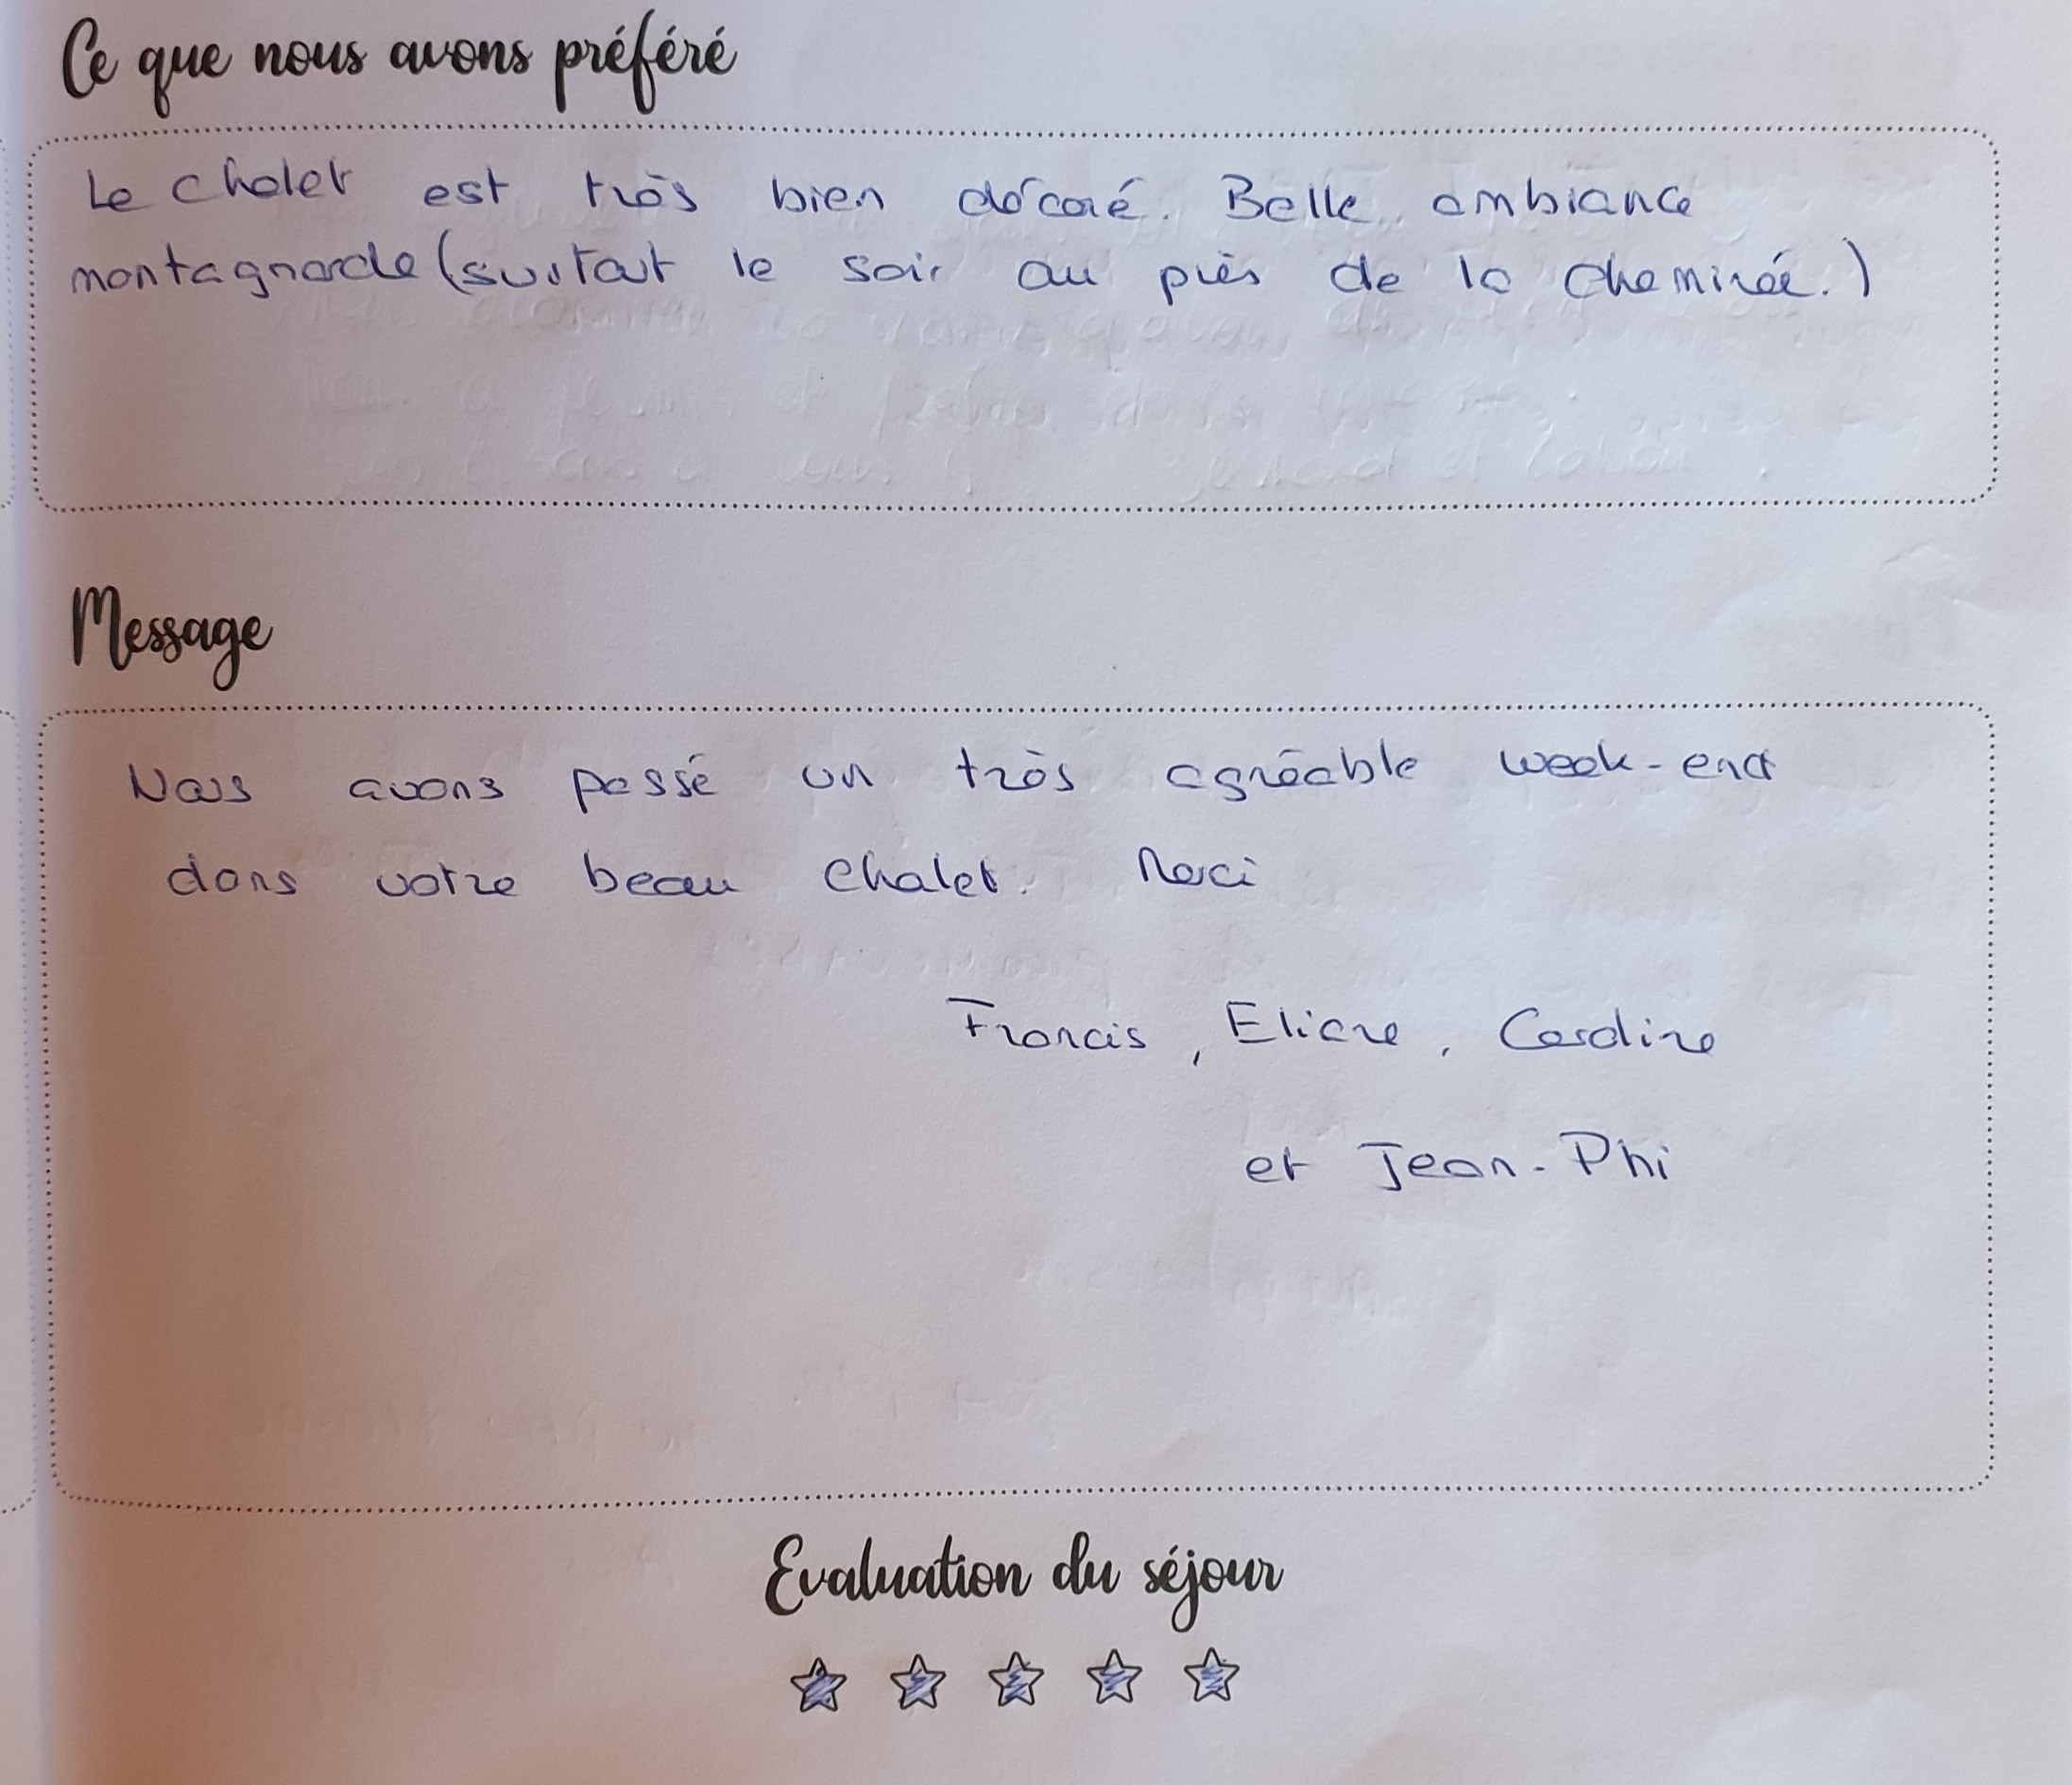 Ce que nous avons préféré
Le chalet est très bien décoré. Belle ambiance
montagnarde (surtout le soir au près de la cheminée.)
Message
Nous avons passé un très agréable week-end
dans votre beau chalet. Merci
Francis, Eliane, Caroline
et Jean-Phi
Evaluation du séjour